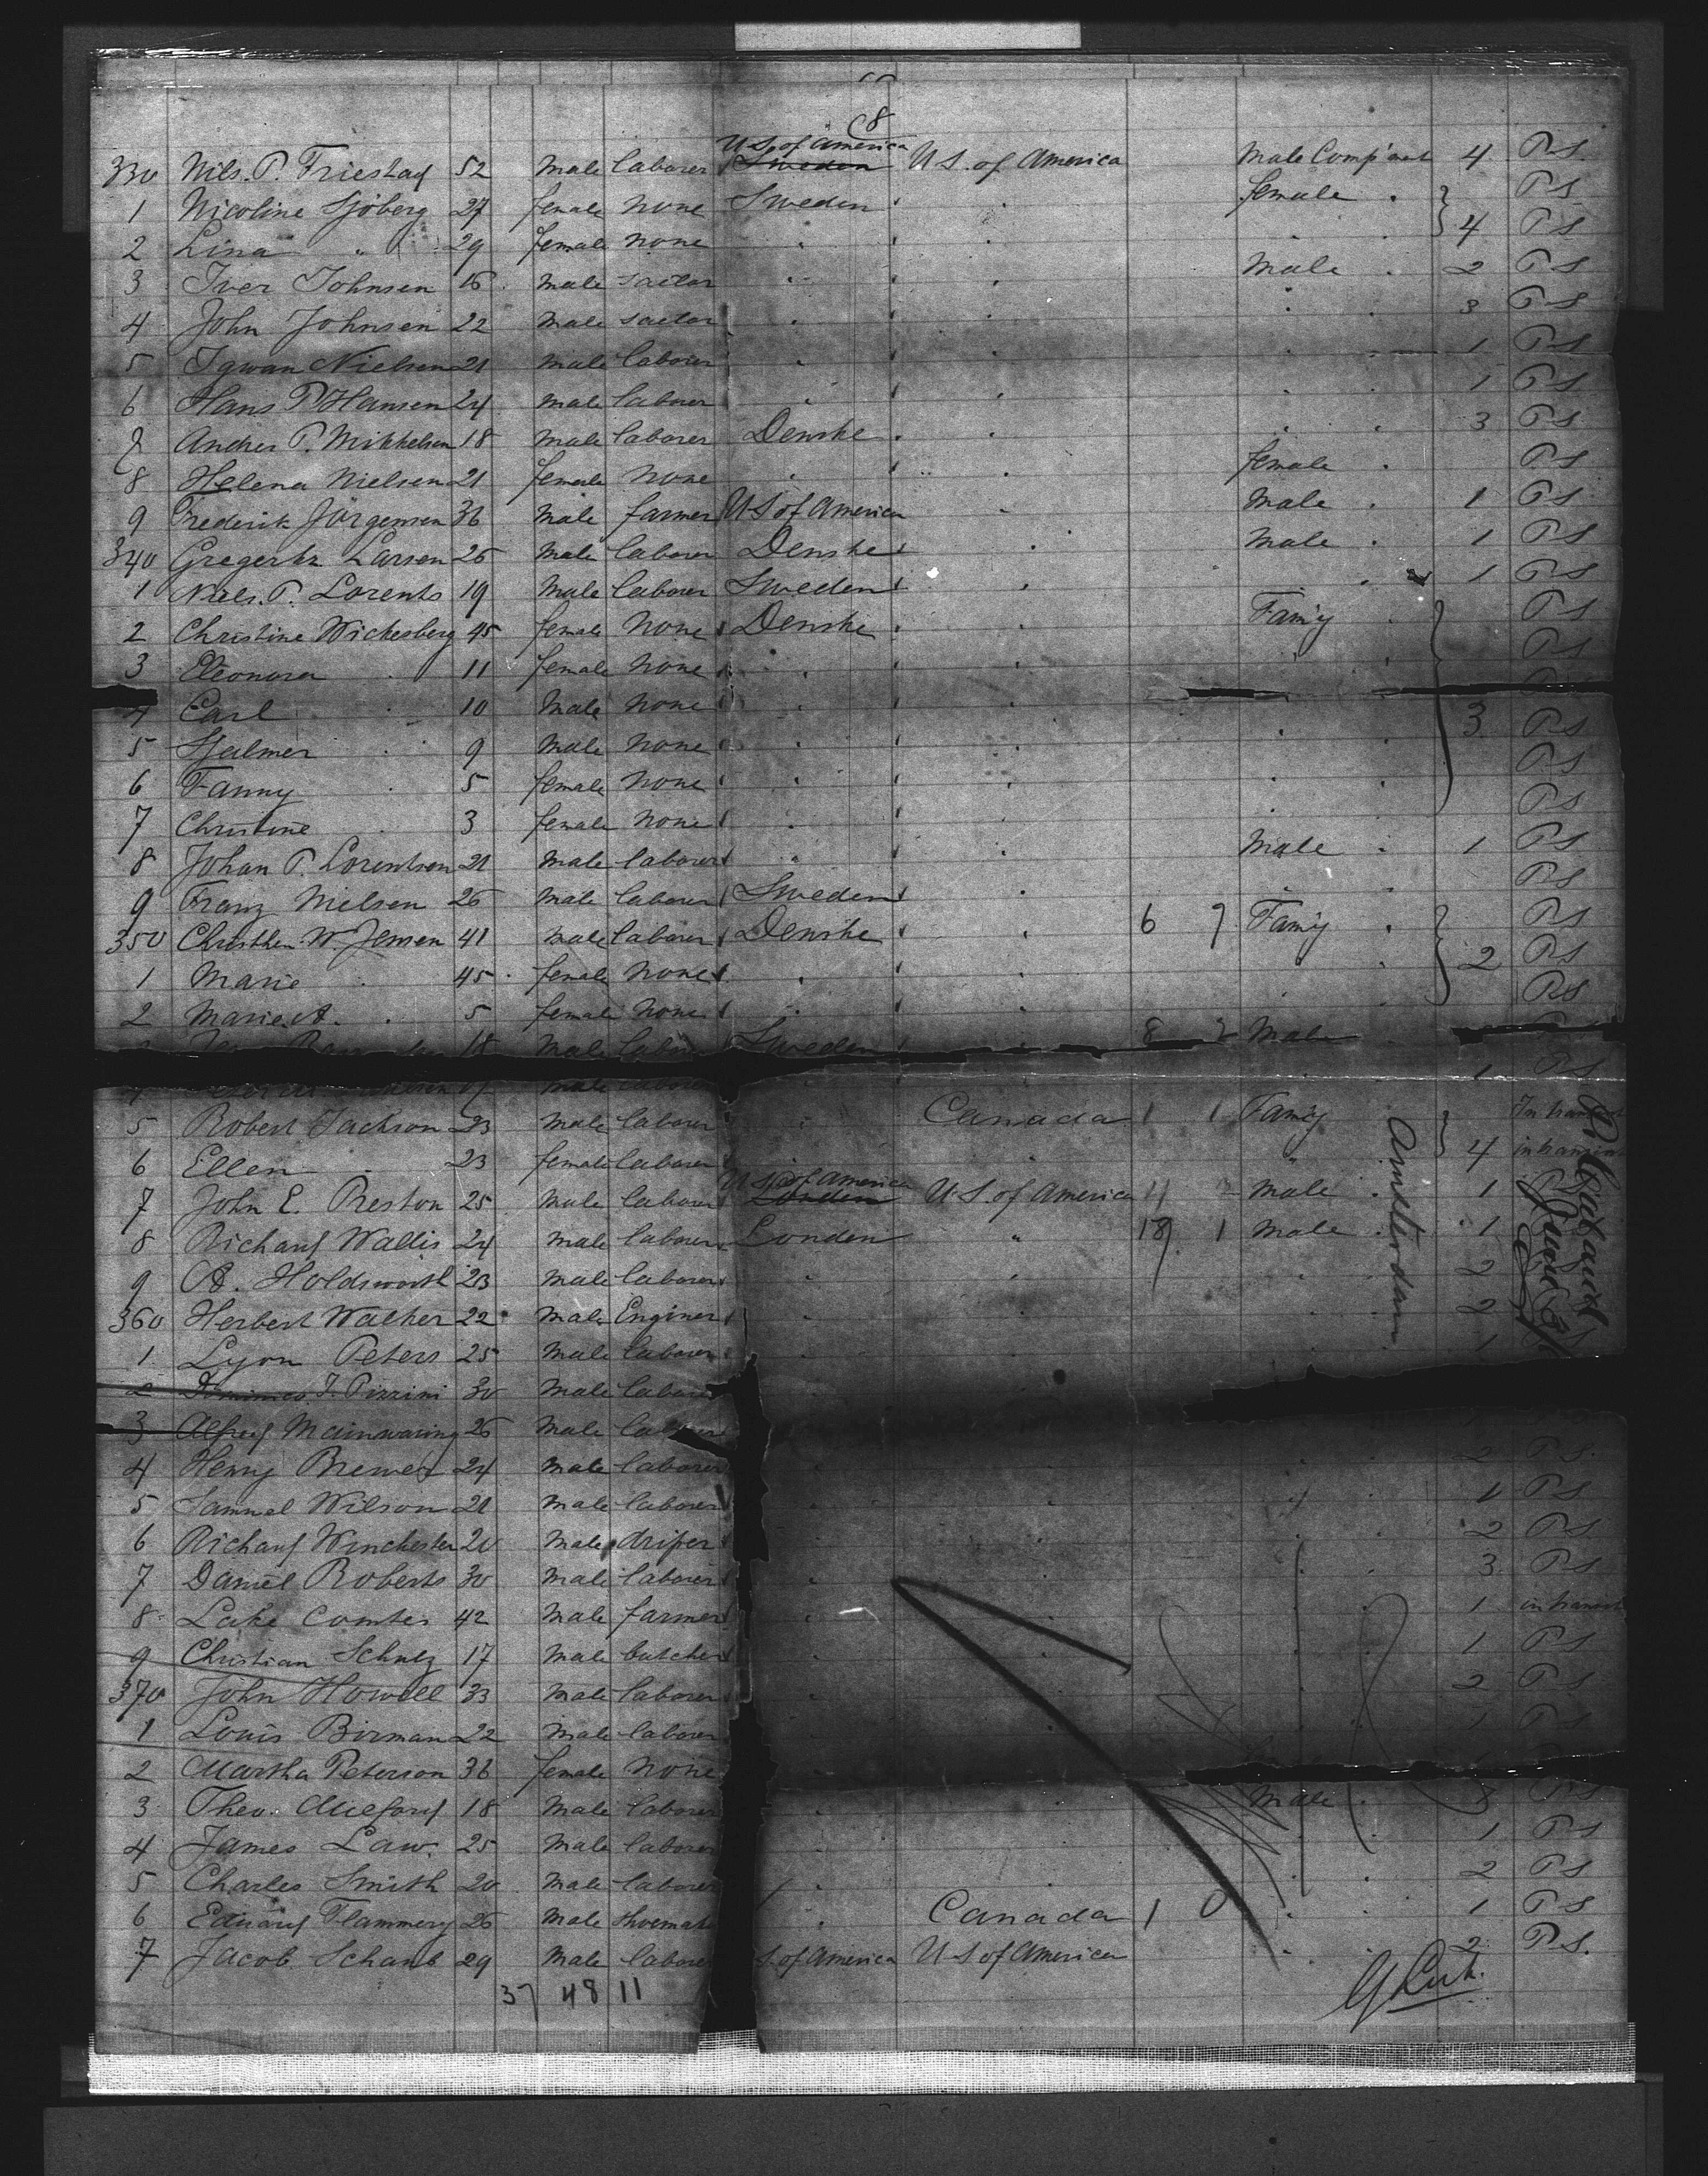 C8
330 Nils. P. Friestad 52 Male laborer U S. of America Sweden U S. of America Male Comp'mt 4 P S.
1 Nicoline Sjöberg 27 female None Sweden " " female " P S
2 Lina " 29 female none " " " " 4 P S
3 Iver Johnsen 16 Male sailor " " Male " 2 P S
4 John Johnsen 22 Male sailor " " " " 3 P S
5 Igwan Nielsen 21 Male laborer " " " " 1 P S
6 Hans P Hansen 24 Male laborer " " " " 1 P S
7 Andres P. Mikkelsen 18 Male laborer Denske " " " 3 P S
8 Helena Nielsen 21 female None " " female " P S
9 Frederik Jörgensen 36 Male farmer U S of America " Male " 1 P S
340 Larsen 26 Male laborer Denske " Male " 1 P S
1 Niels. P. Lorents 19 Male laborer Sweden " " 1 P S
2 Christine Wickesberg 45 female None Denske " Famiy " P S
3 Eleonora " 11 female None " " " " P S
4 Carl " 10 Male None " " " "
5 Hjalmer " 9 Male None " " " " 3 P S
6 Fanny " 5 female None " " " " P S
7 Christine " 3 female None " " " " P S
8 Johan P. Lorentsen 21 Male laborer " " Male " 1 P S
9 Franz Nielsen 26 Male laborer Sweden " " " P S
350 Christhen W. Jensen 41 Male laborer Denske " 6 7 Famiy " P S
1 Marie " 45 female None " " " " 2 P S
2 Marie. A. " 5 female None " " " " P S
18 Male Sweden " 8 2 Male
Male laborer 1 P S
5 Robert Jackson 23 Male laborer " Canada 1 1 Famiy In transit
6 Ellen " 23 female laborer " " " 4 in transit
7 John E. Preston 25 Male laborer U S of America London U S. of America 11 Male " 1 P S
8 Richard Wallis 24 Male laborer London " 18 1 Male " 1
9 A. Holdsworth 23 Male laborer " " " " 2
360 Herbert Walker 22 Male Enginer " " " " 2
1 Lyon Peters 25 Male laborer " " " " 1
2 J. Pizzini 30 Male laborer
3 Alfred Mainwaring 26 Male laborer
4 Henry Brewer 24 Male laborer " " " 2 P S.
5 Samuel Wilson 21 Male laborer " " " 1 P S
6 Richard Winchester 20 Male driper " " " " 2 P S
7 Daniel Roberts 30 Male laborer " " " " 3 P S
8 Luke Comtes 42 Male farmer " " " " 1 in transit
9 Christian Schulz 17 Male butcher " " " " 1 P S
370 John Howell 33 Male laborer " " " " 2 P S
1 Louis Birman 22 Male laborer " " " " 1 P S
2 Martha Peterson 36 female None "
3 Theo. Milford 18 Male laborer " " Male " P S
4 James Law. 25 Male laborer " " " " 1 P S
5 Charles Smith 20 Male laborer " " " " 2 P S
6 Eduard Flammery 26 Male shoemak " Canada 1 0 " " 1 P S
7 Jacob Schaub 29 Male labore S. of America U S of America " " 2 P S.
37 48 11
Amsterdam